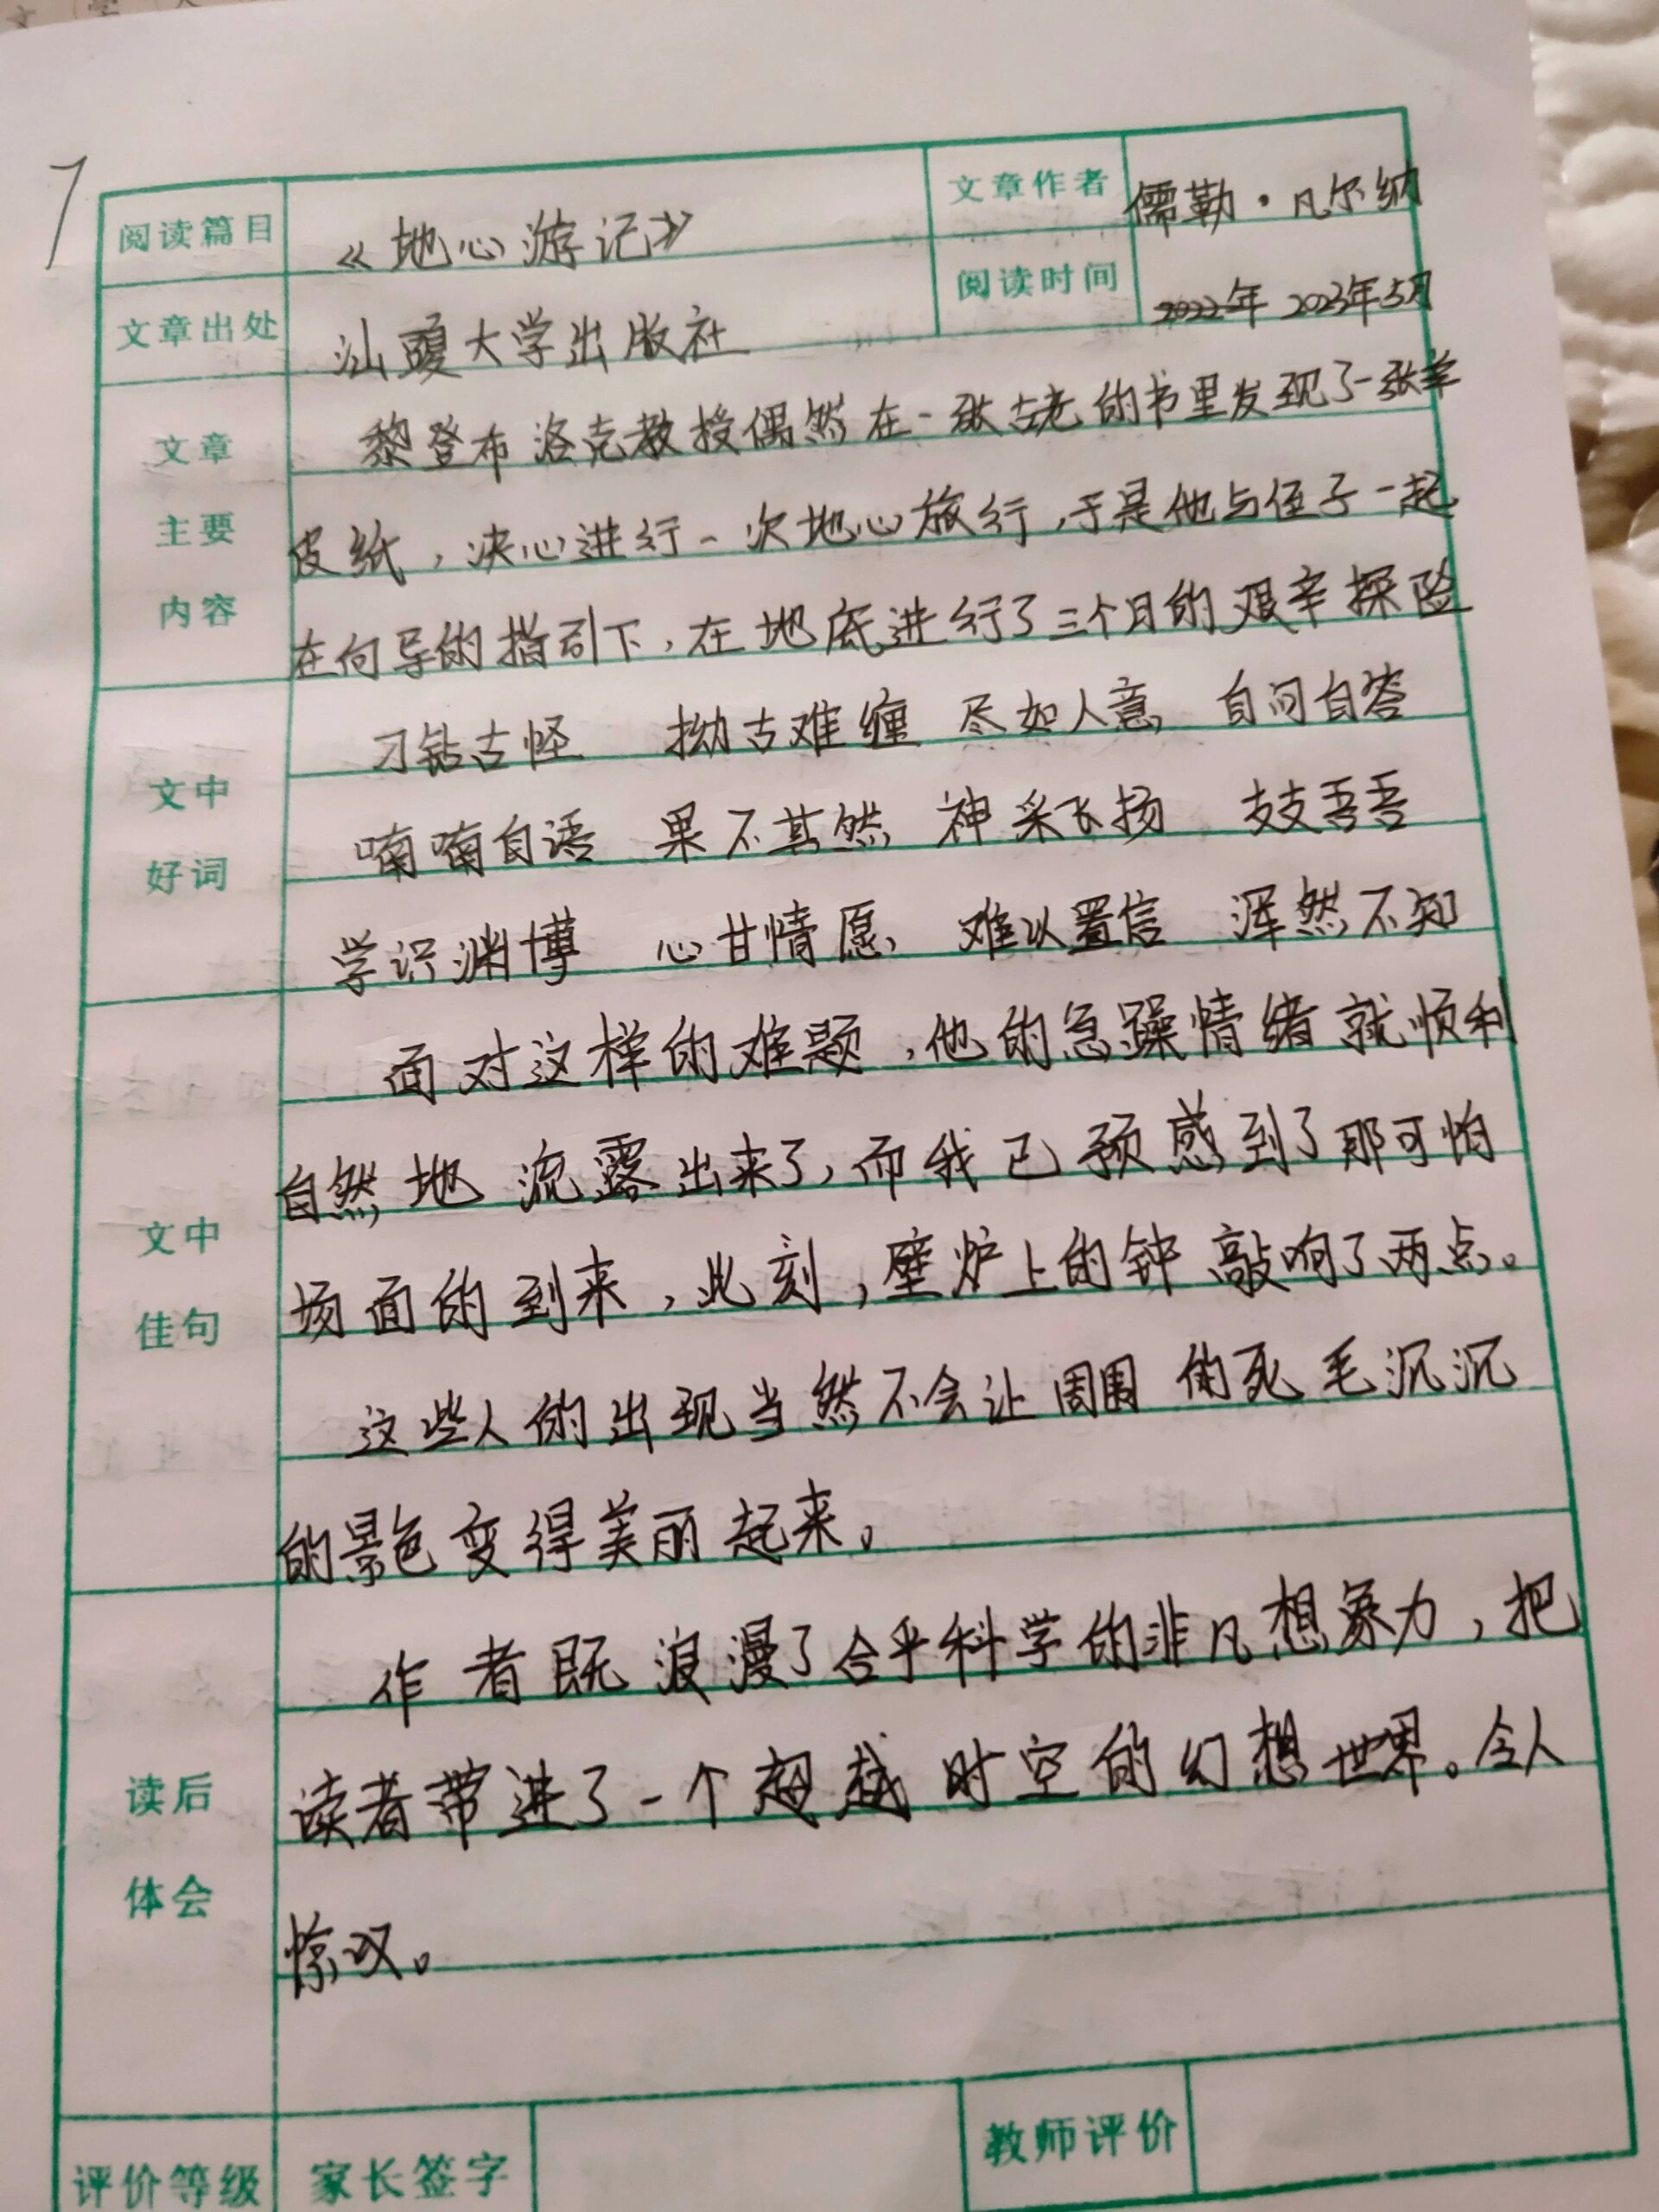 7
阅读篇目 《地心游记》 文章作者 儒勒·凡尔纳
文章出处 汕头大学出版社 阅读时间 2022年 2023年5月
文章主要内容
黎登布洛克教授偶然在一张古老的书里发现了一张羊
皮纸，决心进行一次地心旅行，于是他与侄子一起
在向导的指引下，在地底进行了三个月的艰辛探险
文中好词
刁钻古怪 拗古难缠 尽如人意 自问自答
喃喃自语 果不其然 神采飞扬 支支吾吾
学识渊博 心甘情愿 难以置信 浑然不知
文中佳句
面对这样的难题，他的急躁情绪就顺利
自然地流露出来了，而我已预感到了那可怕
场面的到来，此刻，壁炉上的钟敲响了两点。
这些人的出现当然不会让周围的死毛沉沉
的景色变得美丽起来。
读后体会
作者既浪漫了合乎科学的非凡想象力，把
读者带进了一个超越时空的幻想世界。令人
惊叹。
评价等级 家长签字 教师评价